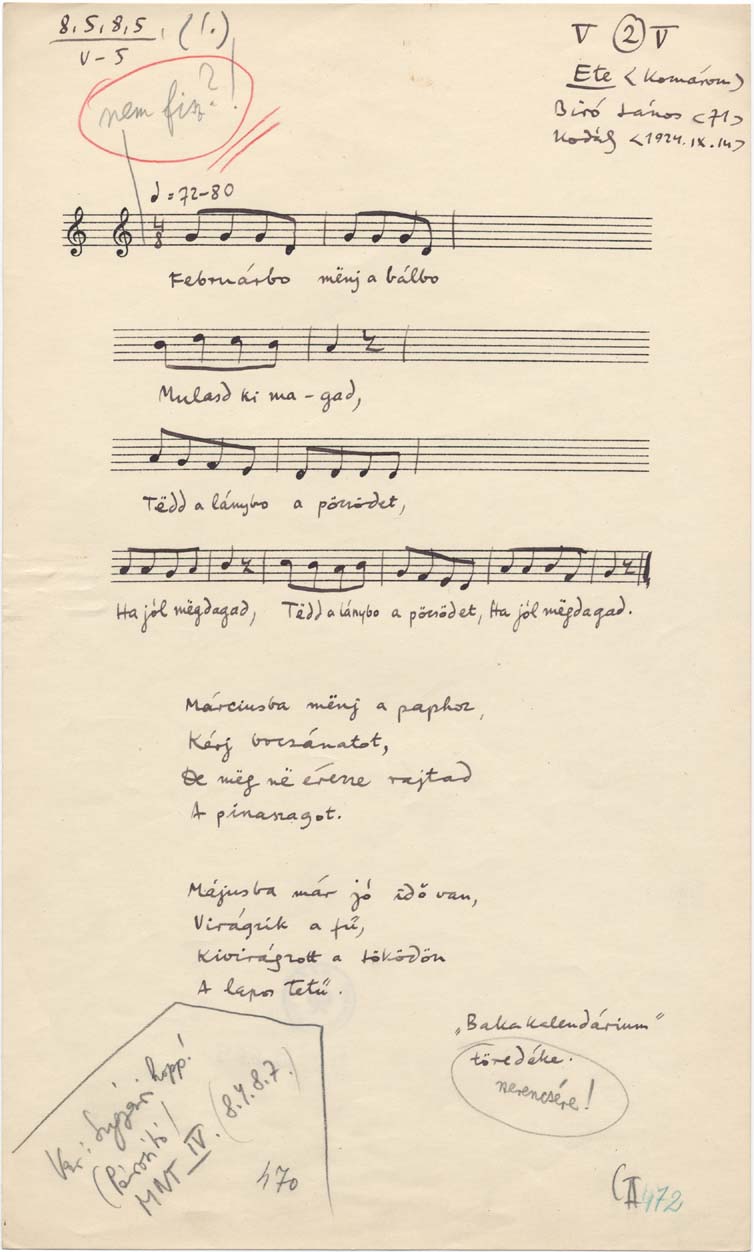 8, 5, 8, 5, (1.)
V – 5
V 2 V
Ete <Komárom>
Biró János <71>
Kodály <1924.IX.14>
nem fiz.? !
♩ = 72–80
4
8
Februárbo mënj a bálbo
Mulasd ki ma – gad,
Tëdd a lánybo a pöcsödet,
Ha jól mëgdagad, Tëdd a lánybo a pöcsödet, Ha jól mëgdagad.
Márciusba mënj a paphoz,
Kérj bocsánatot,
De mëg në érezze rajtad
A pinaszagot.
Májusba már jó idő van,
Virágzik a fű,
Kivirágzott a töködön
A lapos tetű.
„Bakakalendárium"
töredéke.
szerencsére!
hopp!
(Párosító)
MNT IV. (8.7.8.7.)
470
(II 472